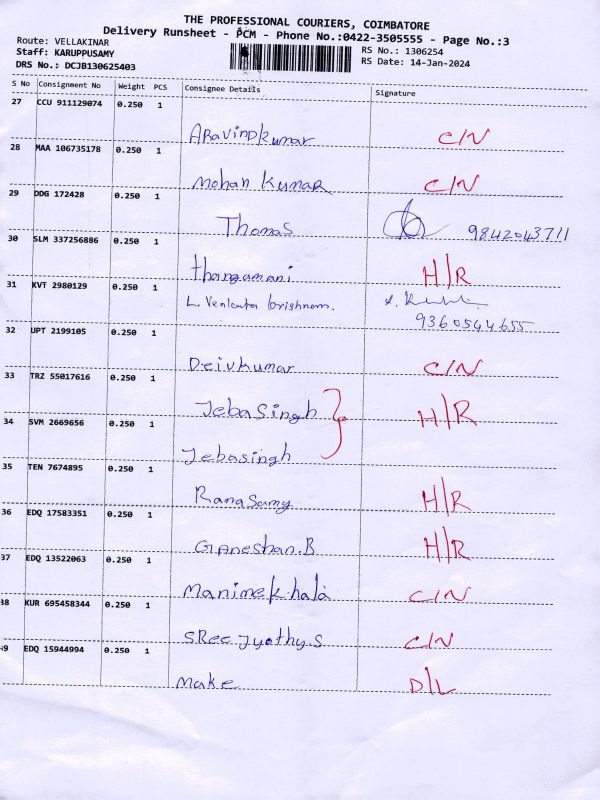 THE PROFESSIONAL COURIERS, COIMBATORE
Delivery Runsheet - PCM - Phone No.:0422-3505555 - Page No.:3
Route: VELLAKINAR
RS No.: 1306254
Staff: KARUPPUSAMY
RS Date: 14-Jan-2024
DRS No.: DCJB130625403
S No Consignment No Weight PCS Consignee Details Signature
27 CCU 911129074 0.250 1
Aravindkumar C/N
28 MAA 106735178 0.250 1
Mohan Kumar C/N
29 DDG 172428 0.250 1
Thomas 9842043711
30 SLM 337256886 0.250 1
thangamani H/R
31 KVT 2980129 0.250 1
L. Venkata krishnam.
9360544655
32 UPT 2199105 0.250 1
Deivkumar C/N
33 TRZ 55017616 0.250 1
Jebasingh H/R
34 SVM 2669656 0.250 1
Jebasingh
35 TEN 7674895 0.250 1
Ranasamy H/R
36 EDQ 17583351 0.250 1
Ganeshan.B H/R
37 EDQ 13522063 0.250 1
Manimekhala C/N
38 KUR 695458344 0.250 1
Sree Jyothy.S C/N
39 EDQ 15944994 0.250 1
Make D/L